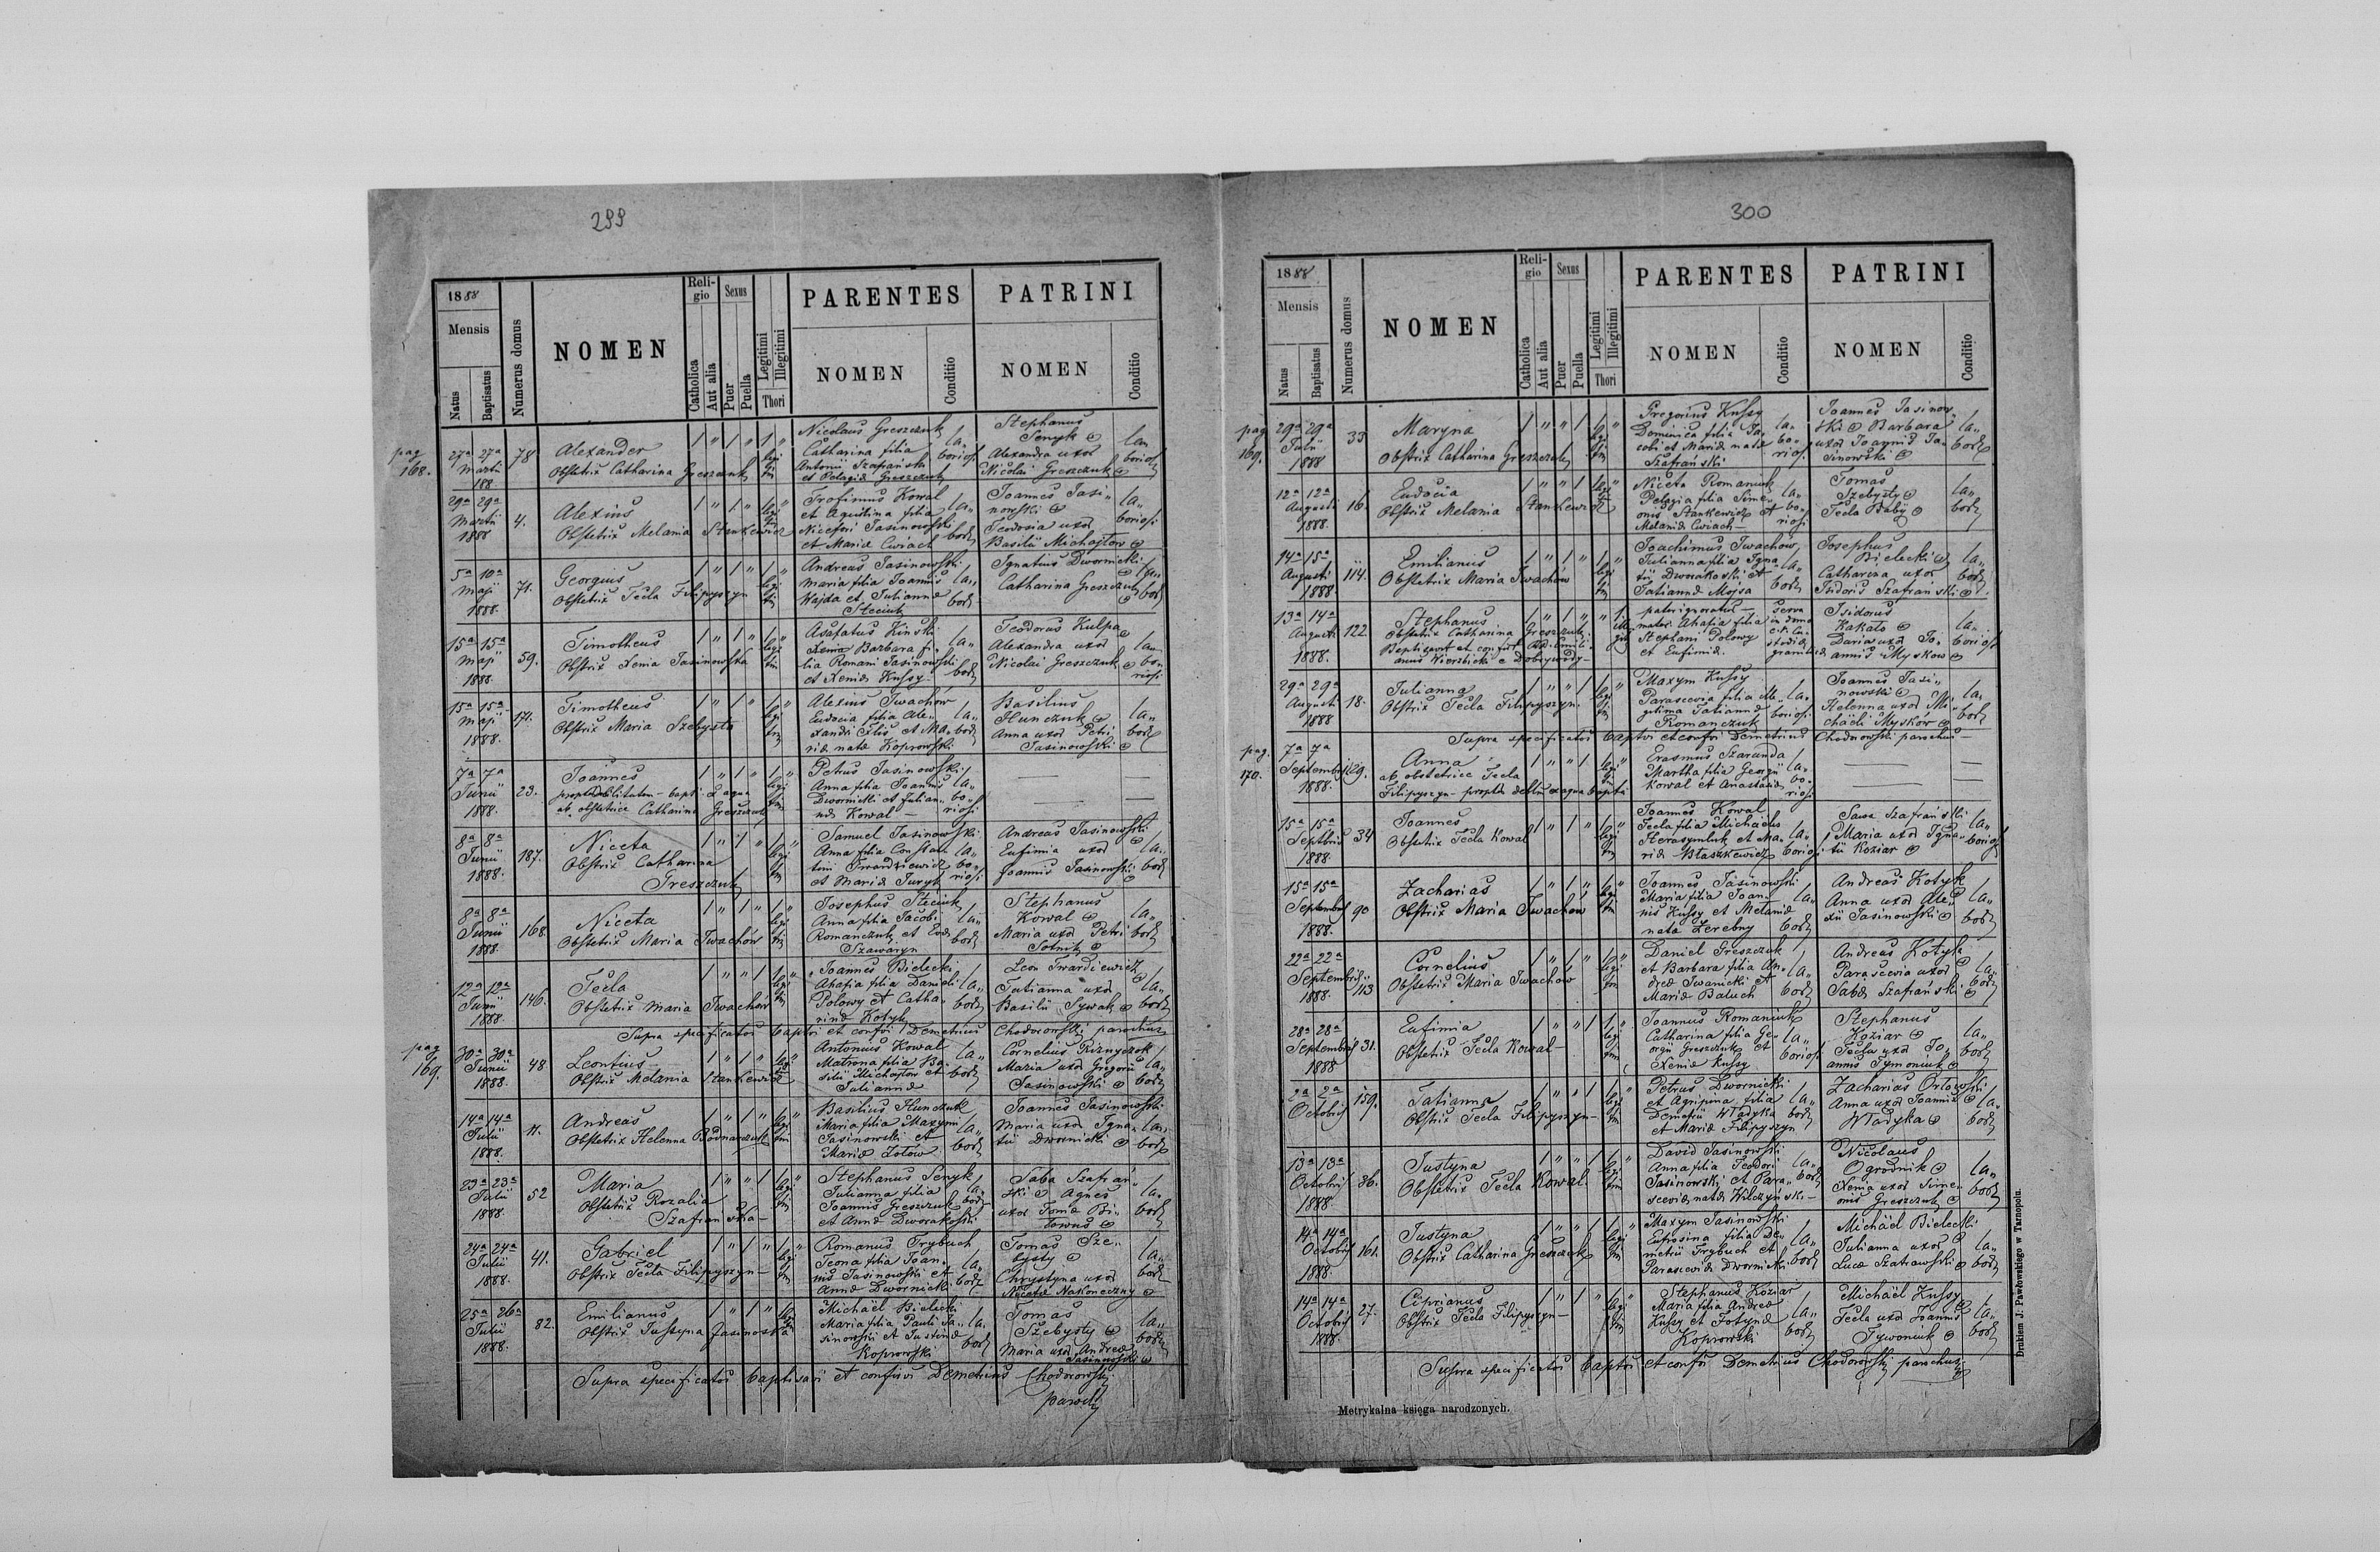 299
1888
Mensis
Natus
Baptisatus
Numerus domus
NOMEN
Reli-
gio
Catholica
Aut alia
Sexus
Puer
Puella
Legitimi
Illegitimi
Thori
PARENTES
NOMEN
Conditio
PATRINI
NOMEN
Conditio
pag
168.
27a 27a
Martii
188
78
Alexander
Obstetrix Catharina Greszczuk
Nicolaus Greszczuk
Catharina filia
Antonii Szafranski
et Pelagiæ Greszczuk
Stephanus
Senyk
Alexandra uxor
Nicolai Greszczuk
29a 29a
Martii
1888
4.
Alexius
Obstetrix Melania Stankewicz
Trofimus Kowal
et Agustina filia
Nicefori Jasinowski
et Mariæ Cwiach
Joannes Jasi„
nowski
Teodosia uxor
Basilii Michajlow
5a 10a
Maji
1888.
71.
Georgius
Obstetrix Tecla Filipyszyn
Andreas Jasinowski
Maria filia Joannis
Wajda et Juliannæ
Steciuk
Ignatius Dwornicki
Catharina Greszczuk
15a 15a
Maji
1888.
59.
Timotheus
Obstrix Xenia Jasinowska
Asafatus Kinski
Xenia Barbara fi„
lia Romani Jasinowski
et Xeniæ Kussy
Teodorus Kulpa
Alexandra uxor
Nicolai Greszczuk
15a 15a
Maji
1888.
171.
Timotheus
Obstrix Maria Szebysta
Alexius Iwachow
Eudocia filia Ale„
xandri Elis et Ma„
riæ natæ Koprowski
Basilius
Hunczuk
Anna uxor Petri
Jasinowski
7a 7a
Junii
1888.
23.
Joannes
propter debilitatem bapt. ex aqua
ab obstetrice Catharina Greszczuk
Petrus Jasinowski
Anna filia Joannis
Dwornicki et Julian„
næ Kowal
8a 8a
Junii
1888.
187.
Niceta
Obstrix Catharina
Greszczuk
Samuel Jasinowski
Anna filia Constan
tini Twardziewicz
et Mariæ Juryk
Andreas Jasinowski
Eufimia uxor
Joannis Jasinowski
8a 8a
Junii
1888.
168.
Niceta
Obstetrix Maria Iwachów
Josephus Steciuk
Anna filia Jacobi
Romanczuk et Eud.
Szawaryn
Stephanus
Kowal
Maria uxor Petri
Sotnik
12a 12a
Junii
1888.
146.
Tecla
Obstetrix Maria Iwachów
Joannes Bielecki
Ahafia filia Danieli
Polowy et Catha„
rinæ Kotyk
Leon Twardziewicz
Tatianna uxor
Basilii Sywak
Supra specificatos baptvi et confvi Demetrius Chodorowski parochus
pag
169.
30a 30a
Junii
1888.
48
Leontius
Obstrix Melania Stankewicz
Antonius Kowal
Matrona filia Ba„
silii Michajlow et
Juliannæ
Cornelius Riznyczok
Maria uxor Grigorii
Jasinowski
14a 14a
Julii
1888.
11.
Andreas
Obstetrix Helenna Bodnarczuk
Basilius Hunczuk
Maria filia Maxymi
Jasinowski et
Mariæ Zotow
Joannes Jasinowski
Maria uxor Igna„
tii Dwornicki
23a 23a
Julii
1888.
52
Maria
Obstetrix Rozalia
Szafranska
Stephanus Senyk
Julianna filia
Joannis Greszczuk
et Annæ Dworakoski
Saba Szafran„
ski Agnes
uxor Tomæ Bi„
lowus
24a 24a
Julii
1888.
41.
Gabriel
Obstrix Tecla Filipyszyn
Romanus Trybuch
Teona filia Joan„
nis Jasinowski et
Annæ Dwornicki
Tomas Sze„
bysty
Chrystyna uxor
Nicetæ Nakoneczny
25a 26a
Julii
1888.
82.
Emilianus
Obstrix Justyna Jasinoska
Michaël Bielecki
Maria filia Pauli Ja„
sinowski et Justinæ
Koprowski
Tomas
Szebysty
Maria uxor Andreæ
Jasinowski
Supra specificatos baptisavi et confirvi Demetrius Chodorowski
paroch
300
1888
Mensis
Natus
Baptisatus
Numerus domus
NOMEN
Reli-
gio
Catholica
Aut alia
Sexus
Puer
Puella
Legitimi
Illegitimi
Thori
PARENTES
NOMEN
Conditio
PATRINI
NOMEN
Conditio
pag
169.
29a 29a
Julii
1888
33
Maryna
Obstrix Catharina Greszczuk
Gregorius Kussy
Dominica filia Ja„
cobi et Mariæ natæ
Szafranski
Joannes Jasinow„
ski Barbara
uxor Joannis Ja„
sinowski
12a 12a
Augusti
1888.
16.
Eudocia
Obstrix Melania Stankewicz
Niceta Romaniuk
Pelagia filia Sime„
onis Stankewicz et
Melaniæ Cwiach
Tomas
Szebysty
Tecla Baby
14a 15a
Augusti
1888
114.
Emilianus
Obstetrix Maria Iwachów
Joachimus Iwachów
Julianna filia Igna„
tii Dworakoski et
Tatiannæ Mojsa
Josephus
Bielecki
Catharina uxor
Isidoris Szafranski
13a 14a
Augusti
1888.
122.
Stephanus
Obstetrix Catharina Greszczuk
Baptisavit et confvit Rd. Emili„
anus Wierzbicki e Dobrywody
pater ignoratus
mater Ahafia filia
Stephani Polowy
et Eufimiæ
Isidorus
Kakalo
Daria uxor Jo„
annis Myskow
29a 29a
Augusti
1888
18.
Julianna
Obstrix Tecla Filipyszyn
Maxym Kussy
Parascevia filia Mi„
Tatiannæ
Romanczuk
Joannes Jasi„
nowski
Helenna uxor Mi„
chaëli Myskow
Supra specificatos baptvi et confvi Demetrius Chodorowski parochus
pag.
170.
7a 7a
Septembris
1888.
29.
Anna
ab obstetrice Tecla
Filipyszyn propter debilit ex aqua bapta
Erasmus Szaranda
Martha filia Georgii
Kowal et Anastasiæ
15a 15a
Septbris
1888.
34
Joannes
Obstetrix Tecla Kowal
Joannes Kowal
Tecla filia Michaelis
Herasymluk et Ma„
riæ Błaszkewicz
Sawa Szafranski
Maria uxor Igna„
tii Koziar
15a 15a
Septembris
1888.
90
Zacharias
Obstrix Maria Iwachow
Joannes Jasinowski
Maria filia Joan„
nis Kussy et Melaniæ
nata Zerebny
Andreas Kotyk
Anna uxor Ale„
xii Jasinowski
22a 22a
Septembris
1888.
113
Cornelius
Obstetrix Maria Iwachów
Daniel Greszczuk
et Barbara filia An„
dreæ Iwanicki et
Mariæ Baluch
Andreas Kotyk
Parascevia uxor
Sabæ Szafranski
28a 28a
Septembris
1888
31.
Eufimia
Obstetrix Tecla Kowal
Joannes Romaniuk
Catharina filia Ge„
orgii Greszczuk et
Xeniæ Kussy
Stephanus
Koziar
Tecla uxor Jo„
annis Tymoniuk
2a 2a
Octobris
159.
Tatianna
Obstrix Tecla Filipyszyn
Petrus Dwornicki
et Agripina filia
Demetrii Władyka
et Mariæ Filipyszyn
Zacharias Orlowski
Anna uxor Joannis
Władyka
13a 13a
Octobris
1888.
36.
Justyna
Obstetrix Tecla Kowal
David Jasinowski
Anna filia Teodori
Jasinowski et Para„
sceviæ natæ Wilczynski
Nicolaus
Ogrodnik
Xenia uxor Sime„
onis Greszczuk
14a 14a
Octobris
1888.
161.
Justyna
Obstrix Catharina Greszczuk
Maxym Jasinowski
Eufrosina filia De„
metrii Trybuch et
Parasceviæ Dwornicki
Michaël Bielecki
Julianna uxor
Lucæ Szatrawski
14a 14a
Octobris
1888
27.
Ciprianus
Obstrix Tecla Filipyszyn
Stephanus Koziar
Maria filia Andreæ
Kussy et Fotynæ
Koprowski
Michaël Kussy
Tecla uxor Joannis
Tywoniuk
Supra specificatos baptvi et confvi Demetrius Chodorowski parochus
Metrykalna księga narodzonych.
Drukiem J. Pawłowskiego w Tarnopolu.